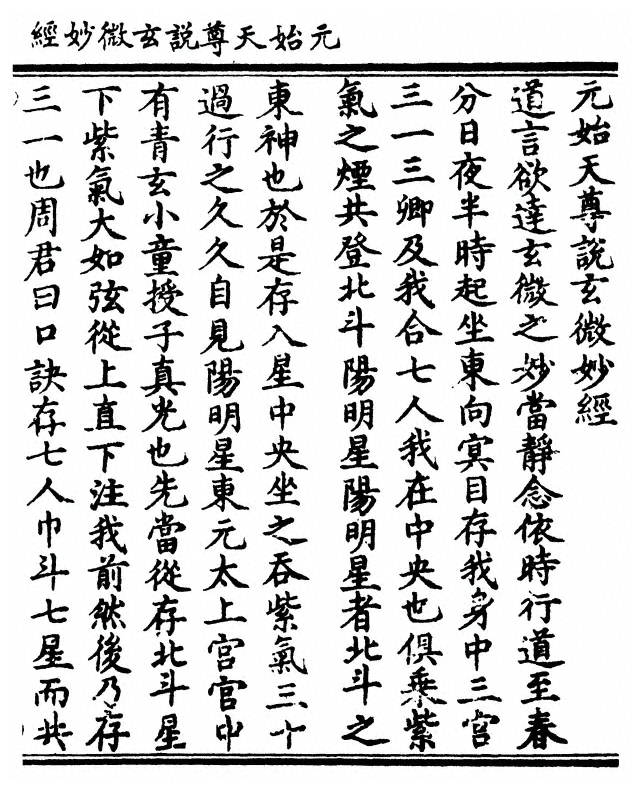 元始天尊說玄微妙經
元始天尊說玄微妙經
道言欲達玄微之妙當靜念依時行道至春
分日夜半時起坐東向冥目存我身中三宮
三一三卿及我合七人我在中央也俱乘紫
氣之煙共登北斗陽明星陽明星者北斗之
東神也於是存入星中央坐之吞紫氣三十
過行之久久自見陽明星東元太上宮宮中
有青玄小童授子真光也先當從存北斗星
下紫氣大如弦從上直下注我前然後乃存
三一也周君曰口訣存七人巾斗七星而共